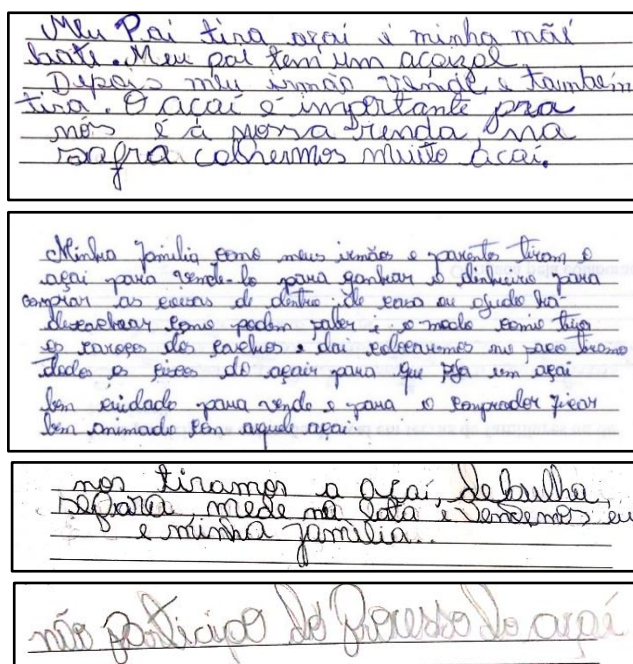 Meu Pai tira açaí i minha mãe
bate. Meu pai tem um açaizal
Depois meu irmão vende e também
tira. O açaí é importante pra
nós é á nossa renda, na
safra colhermos muito açaí.
Minha família como meus irmãos e parentes tiram o
açai para vende-lo para ganhar o dinheiro para
comprar as coisas de dentro de casa ou ajudo há
como podem saber é o modo como tiro
os caroços dos cachos e dai colocarmos no
todos os do açair para que seja um açai
bem cuidado para vende e para o comprador ficar
bem animado com aquele açai.
nos tiramos o açaí, debulha,
separa, mede na lata e vendemos eu
e minha família.
não participo do processo do açaí